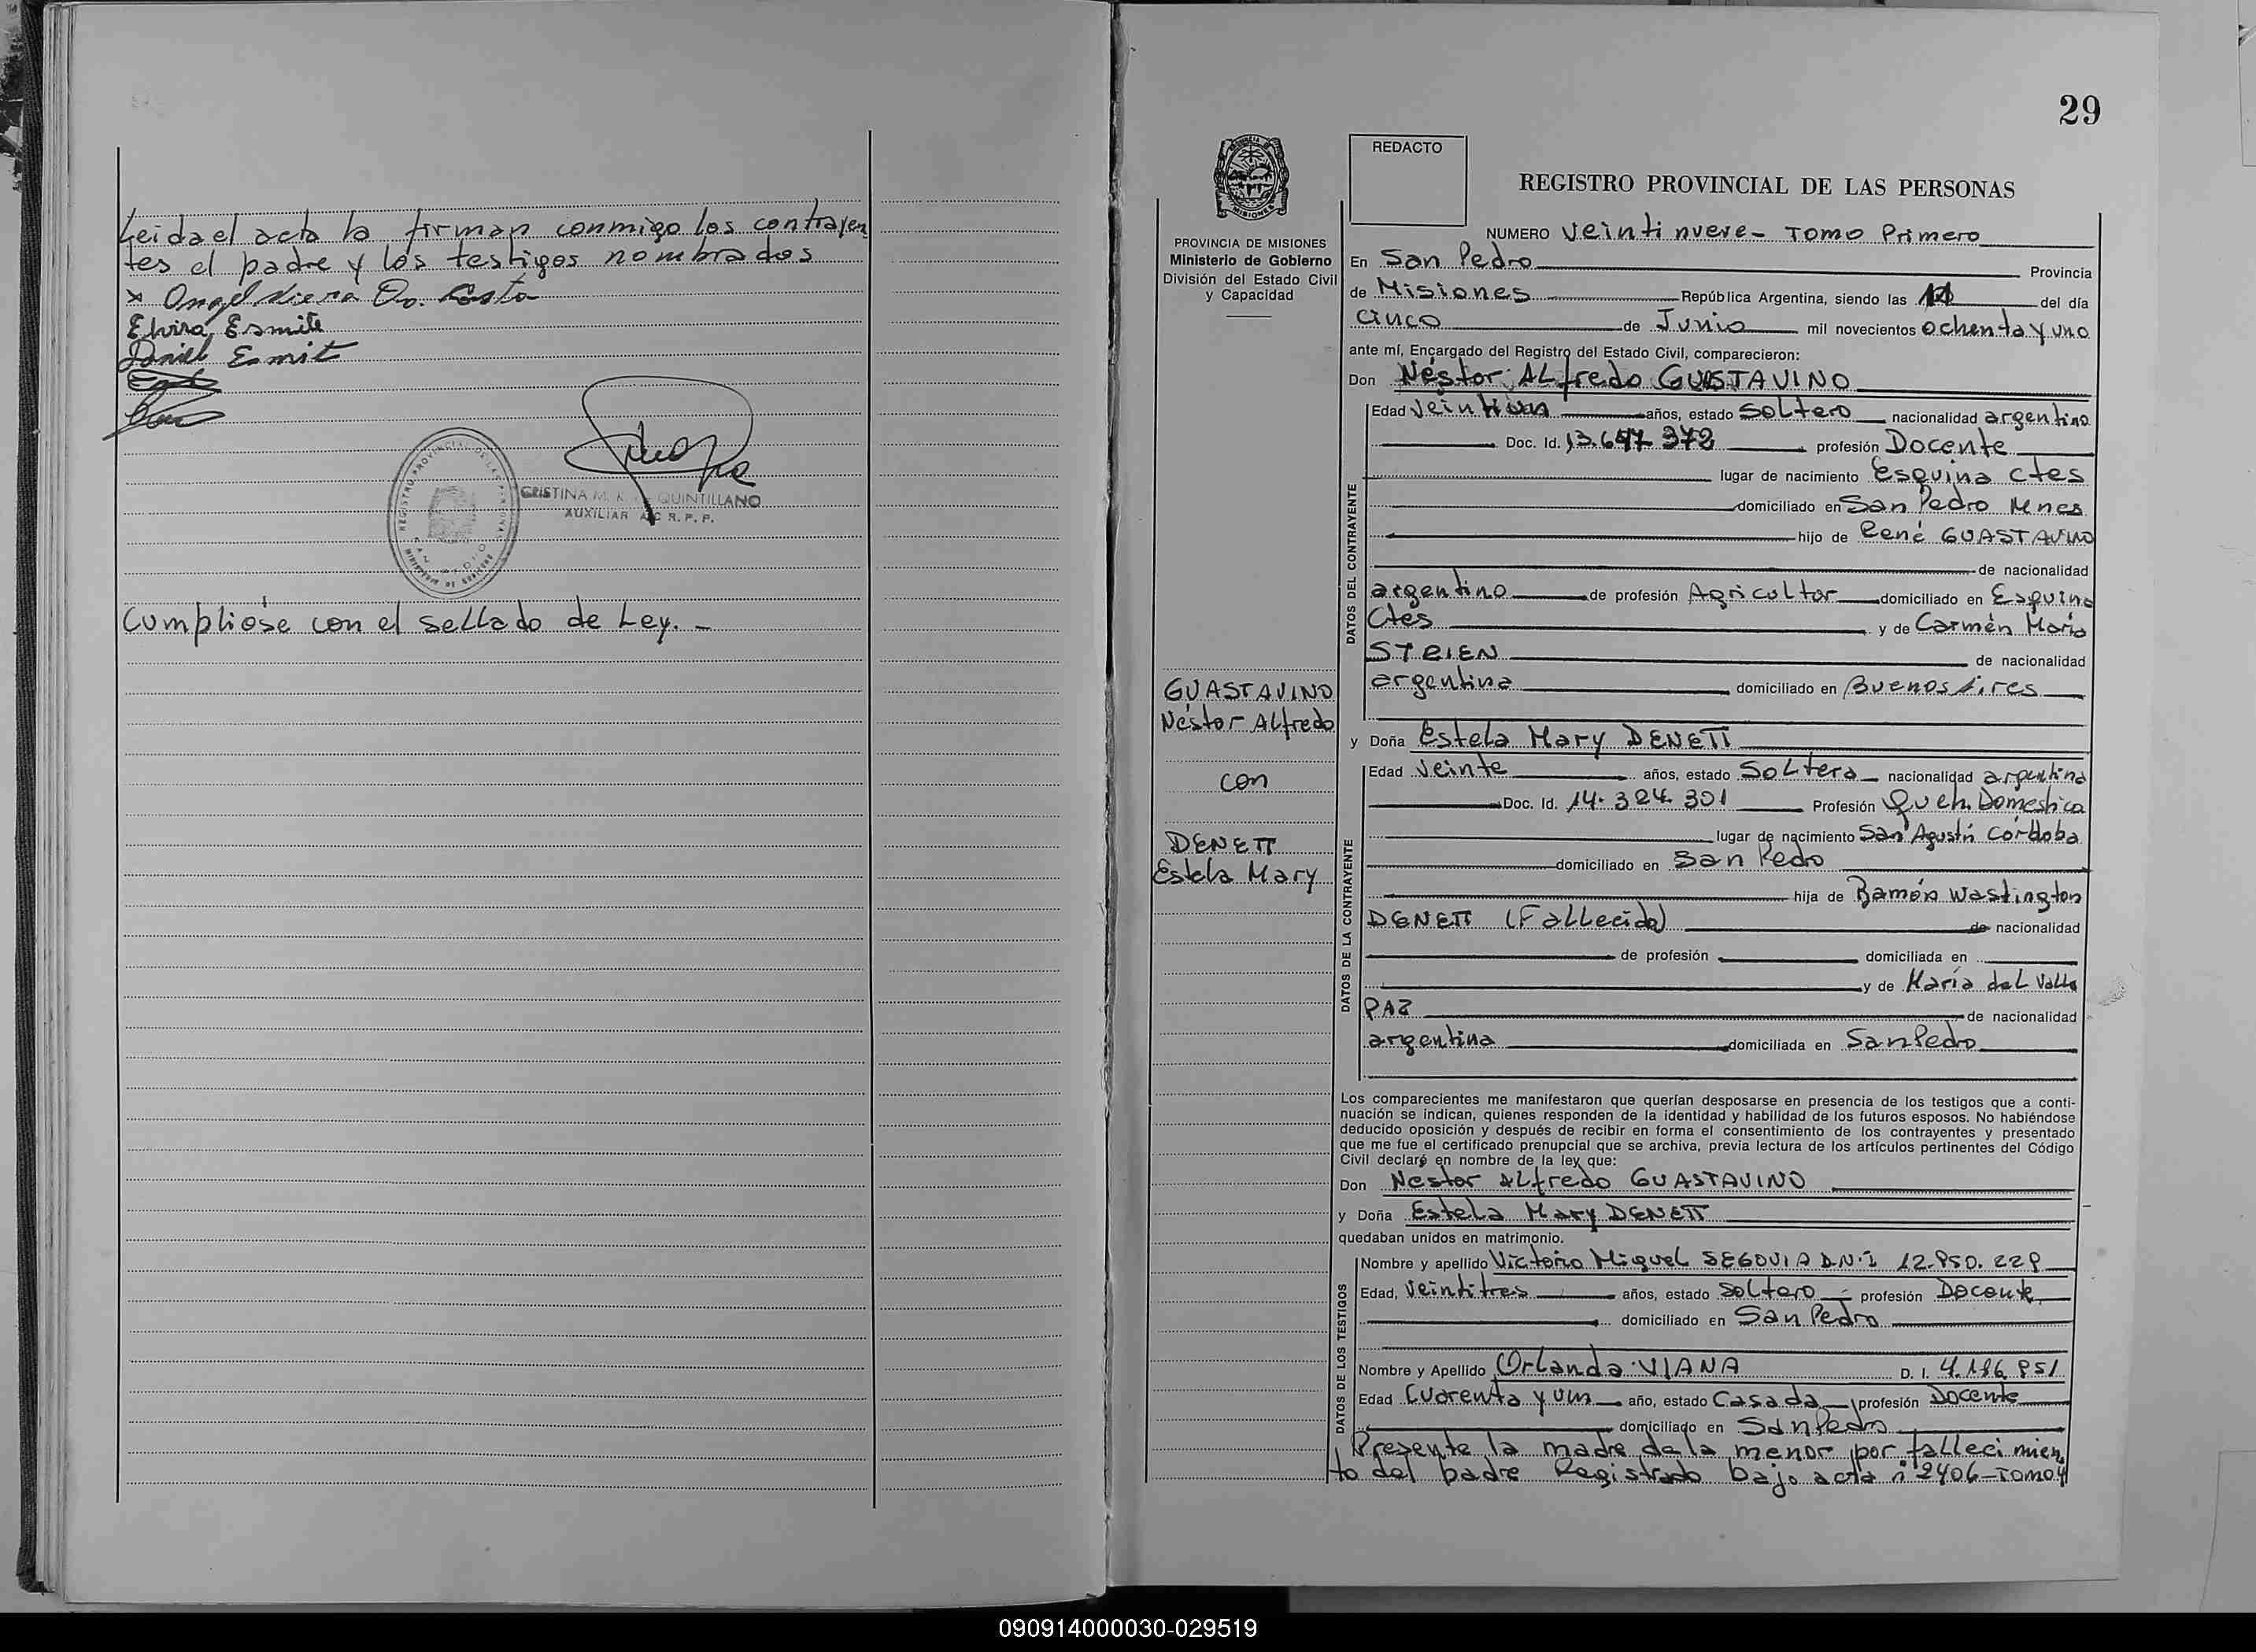 Leida el acta la firman conmigo los contrayen
tes el padre y los testigos nombrados
x Angel Viera Da. Costa
Elvira Esmite
Daniel Esmit
REGISTRO PROVINCIAL DE LAS PERSONAS
SAN PEDRO
CRISTINA M. QUINTILLANO
AUXILIAR R. P. P.
Cumpliose con el sellado de Ley. -
29
REDACTO
REGISTRO PROVINCIAL DE LAS PERSONAS
MISIONES
PROVINCIA DE MISIONES
Ministerio de Gobierno
División del Estado Civil
y Capacidad
NUMERO Veinti nueve - Tomo Primero
En San Pedro Provincia
de Misiones República Argentina, siendo las 11 del día
cinco de Junio mil novecientos ochenta y uno
ante mí, Encargado del Registro del Estado Civil, comparecieron:
Don Néstor Alfredo GUASTAVINO
DATOS DEL CONTRAYENTE
Edad Veintiun años, estado Soltero nacionalidad argentino
Doc. Id. 13.647.372 profesión Docente
lugar de nacimiento Esquina Ctes
domiciliado en San Pedro Mnes
hijo de René GUASTAVINO
de nacionalidad
argentino de profesión Agricultor domiciliado en Esquina
Ctes y de Carmén María
STEIEN de nacionalidad
argentina domiciliado en Buenos Aires
GUASTAVINO
Néstor Alfredo
con
DENETT
Estela Mary
y Doña Estela Mary DENETT
DATOS DE LA CONTRAYENTE
Edad Veinte años, estado Soltera nacionalidad argentina
Doc. Id. 14.324.301 Profesión Queh. Domestica
lugar de nacimiento San Agustín Córdoba
domiciliado en San Pedro
hija de Ramón Wastington
DENETT (Fallecido) de nacionalidad
de profesión domiciliada en
y de María del Valle
PAZ de nacionalidad
argentina domiciliada en San Pedro
Los comparecientes me manifestaron que querían desposarse en presencia de los testigos que a conti-
nuación se indican, quienes responden de la identidad y habilidad de los futuros esposos. No habiéndose
deducido oposición y después de recibir en forma el consentimiento de los contrayentes y presentado
que me fue el certificado prenupcial que se archiva, previa lectura de los artículos pertinentes del Código
Civil declaré en nombre de la ley que:
Don Nestor Alfredo GUASTAVINO
y Doña Estela Mary DENETT
quedaban unidos en matrimonio.
DATOS DE LOS TESTIGOS
Nombre y apellido Victorio Miguel SEGOVIA D.N.I 12.850.228
Edad, Veintitres años, estado Soltero profesión Docente
domiciliado en San Pedro
Nombre y Apellido Orlanda VIANA D. I. 4.186.851
Edad Cuarenta y un año, estado Casada profesión Docente
domiciliado en San Pedro
Presente la madre de la menor por fallecimien
to del padre Registrado bajo acta n 2406-Tomo 4
090914000030-029519